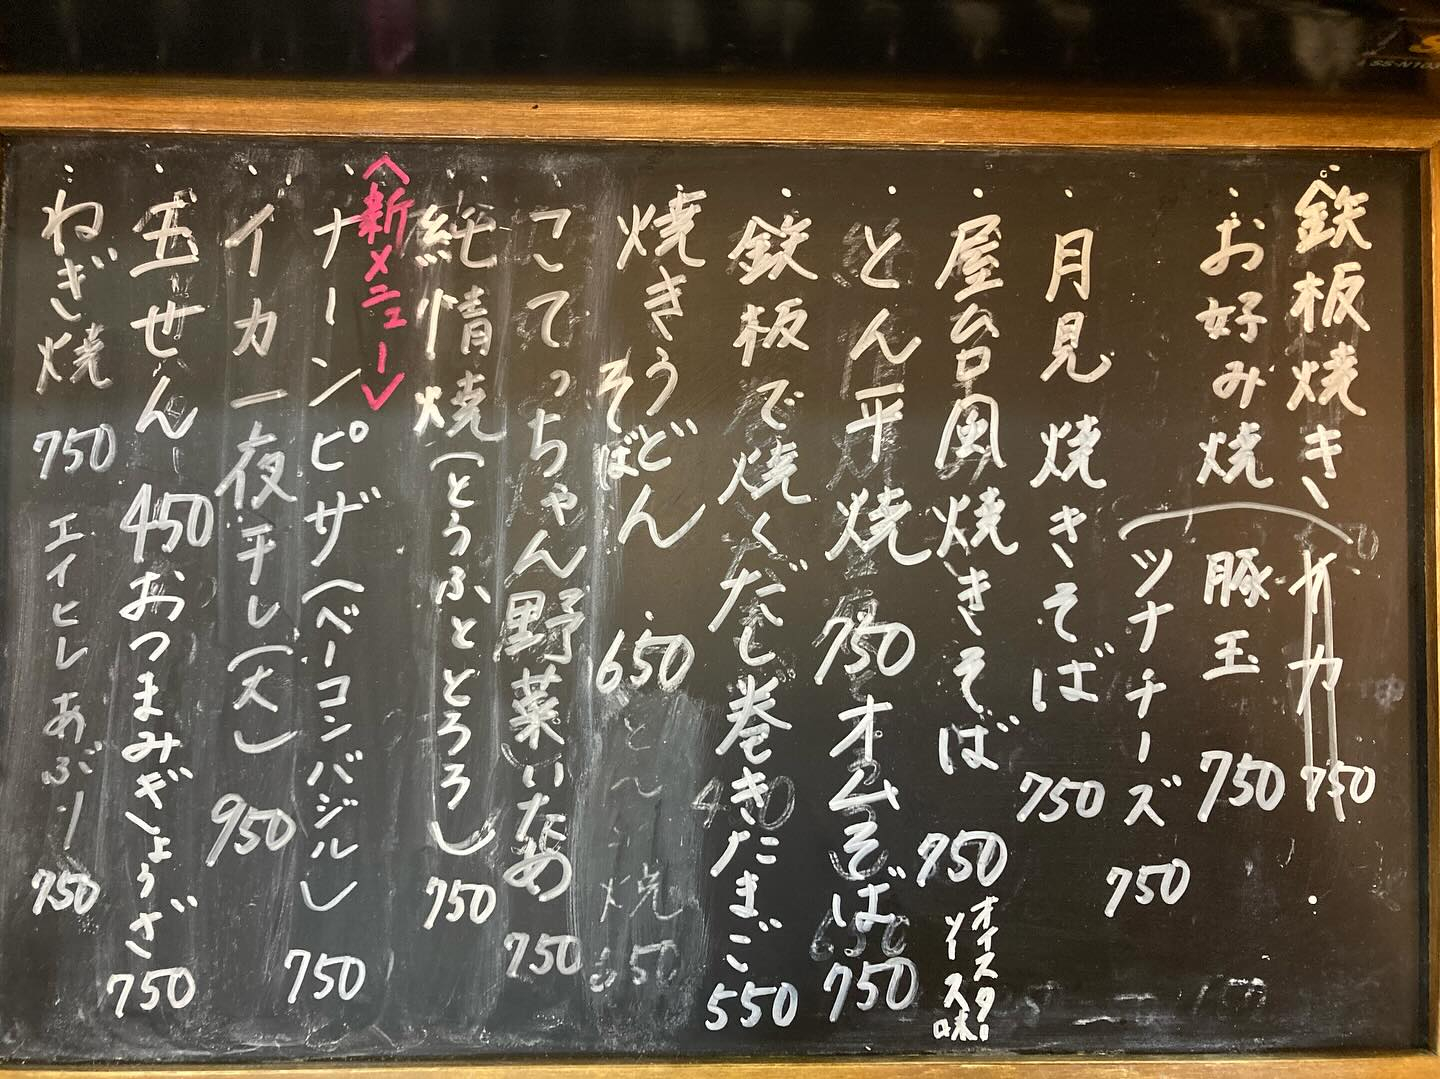 鉄板焼き
お好み焼
イカ 750
豚玉 750
ツナチーズ 750
月見焼きそば 750
屋台風焼きそば 750
オイスター
ソース味
とん平焼 750
オムそば 750
鉄板で焼くだし巻きたまご 550
焼きうどん
そば
650
こてっちゃん野菜いため 750
純情焼(とうふととろろ) 750
<新メニュー>
ナーンピザ(ベーコンバジル) 750
イカ一夜干し(大) 950
玉せん 450
おつまみぎょうざ 750
ねぎ焼 750
エイヒレあぶり 750